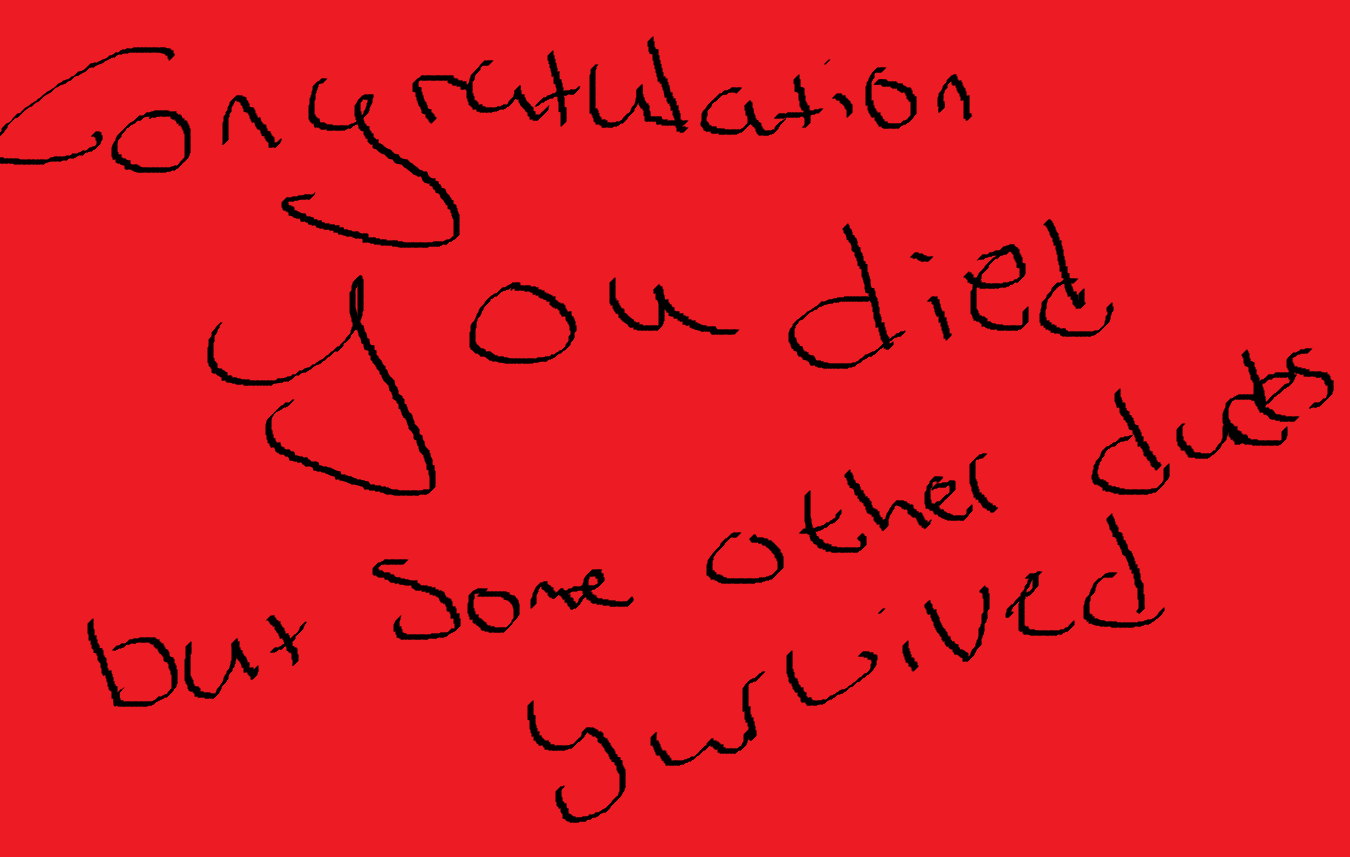 Congratulation
you died
but some other duds
survived